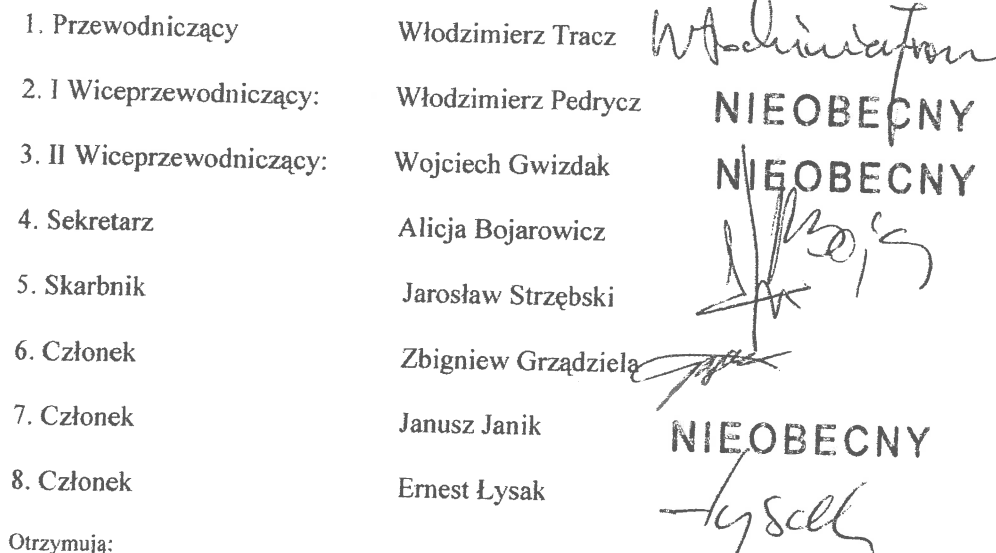 1. Przewodniczący Włodzimierz Tracz
2. I Wiceprzewodniczący: Włodzimierz Pedrycz NIEOBECNY
3. II Wiceprzewodniczący: Wojciech Gwizdak NIEOBECNY
4. Sekretarz Alicja Bojarowicz
5. Skarbnik Jarosław Strzębski
6. Członek Zbigniew Grządziela
7. Członek Janusz Janik NIEOBECNY
8. Członek Ernest Łysak Łysak
Otrzymują: